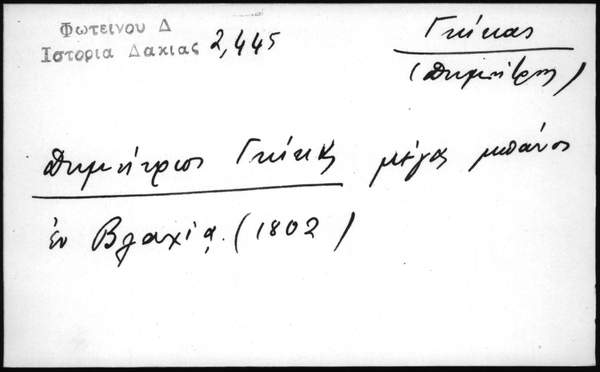 Φωτεινου Δ
Ιστορια Δακιας 2,445
Γκίκας
(Δημήτρης)
Δημήτριος Γκίκας μέγας μπάνος
ἐν Βλαχίᾳ. (1802)